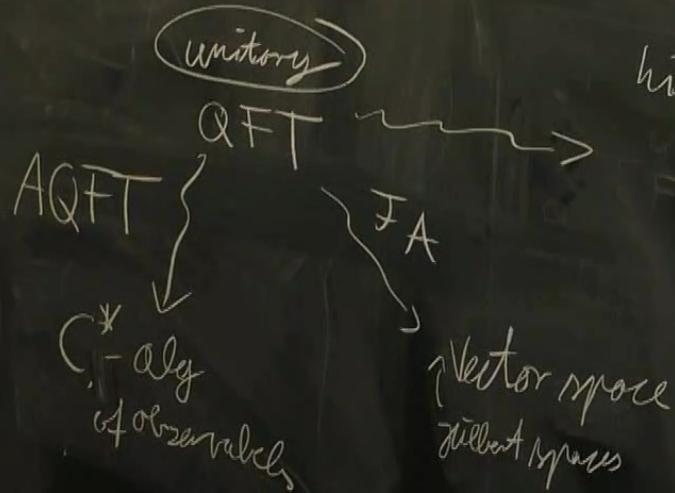 unitary
hi
QFT
AQFT
FA
C*-alg
of observabels
Vector space
Hilbert spaces